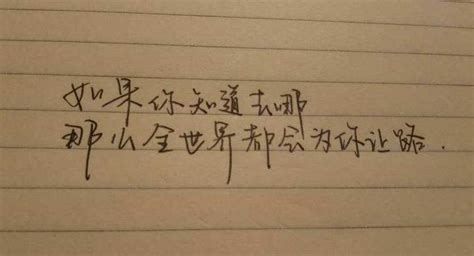 如果你知道去哪
那么全世界都会为你让路.